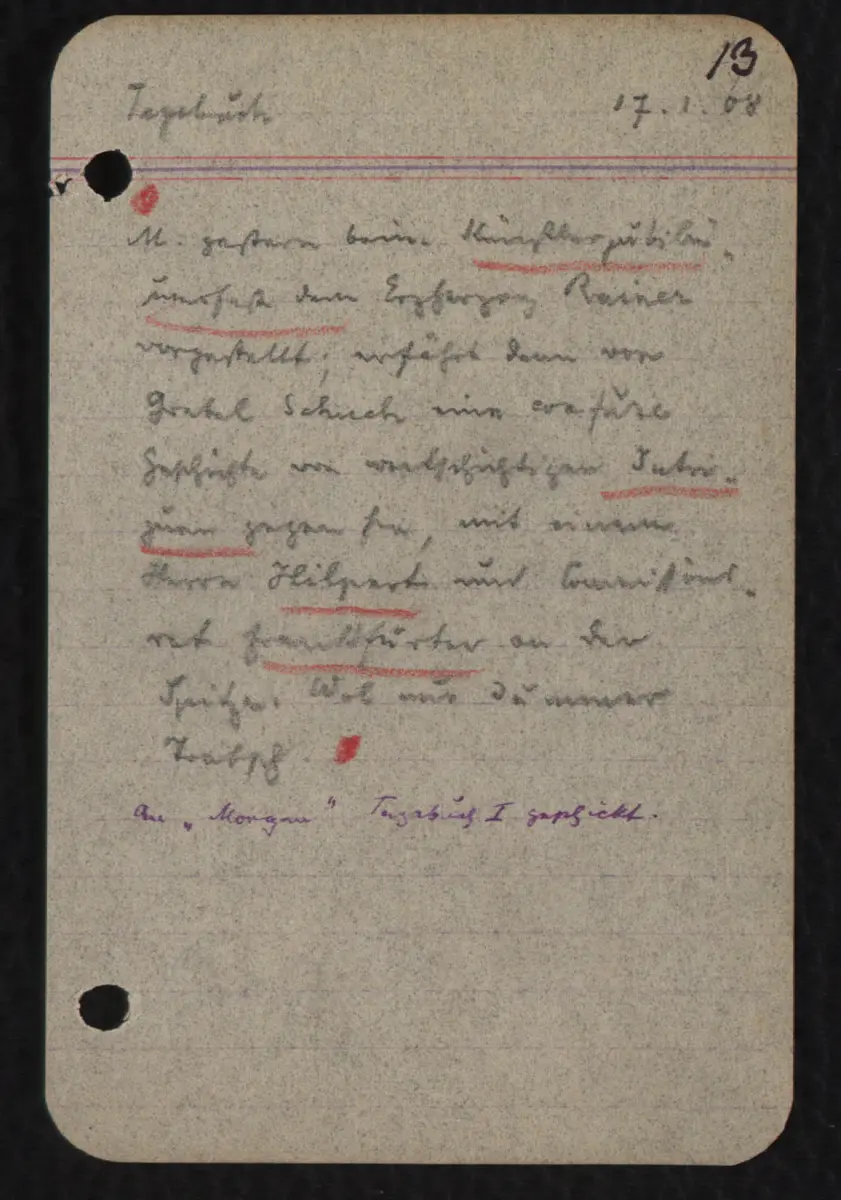 13
Tagebuch 17.1.08
M. gestern beim Künstlerjubilä„
umsfest dem Erzherzog Rainer
vorgestellt; erfährt dann von
Gretel Schuch eine confuse
Geschichte von weitschichtigen Intri„
guen gegen sie, mit einem
Herrn Hilpert und Commissions„
rat Frankfurter an der
Spitze. Wol nur dummer
Tratsch.
An „Morgen" Tagebuch I geschickt.